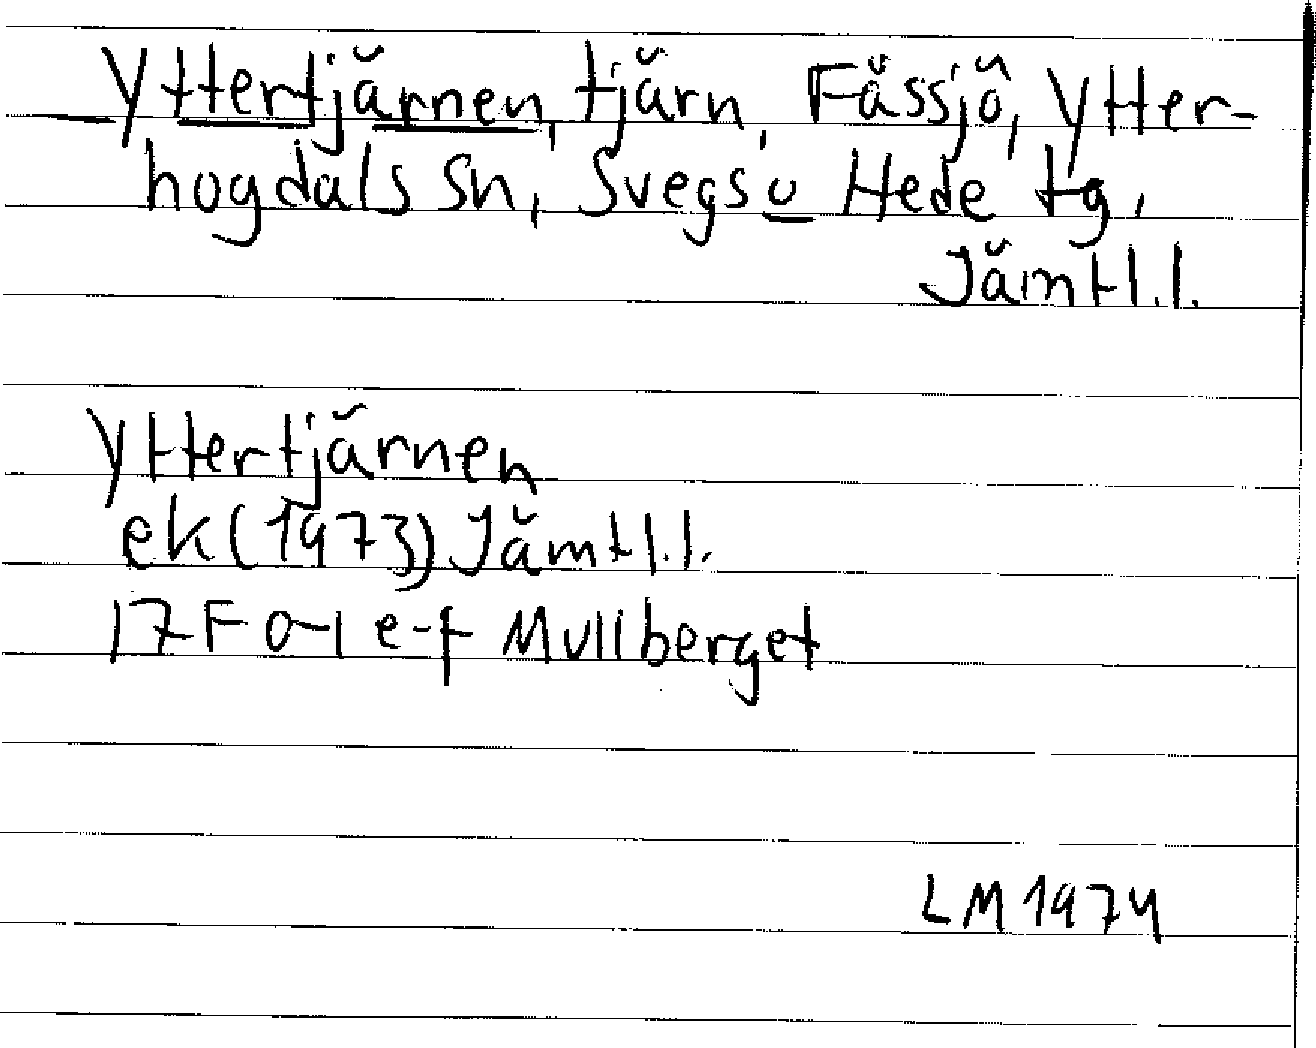 Yttertjärnen, tjärn, Fässjö, Ytter-
hogdals sn, Svegs o Hede tg,
Jämtl.l.
Yttertjärnen
ek(1973) Jämtl.l.
17F 0-1 e-f Mullberget
LM 1974